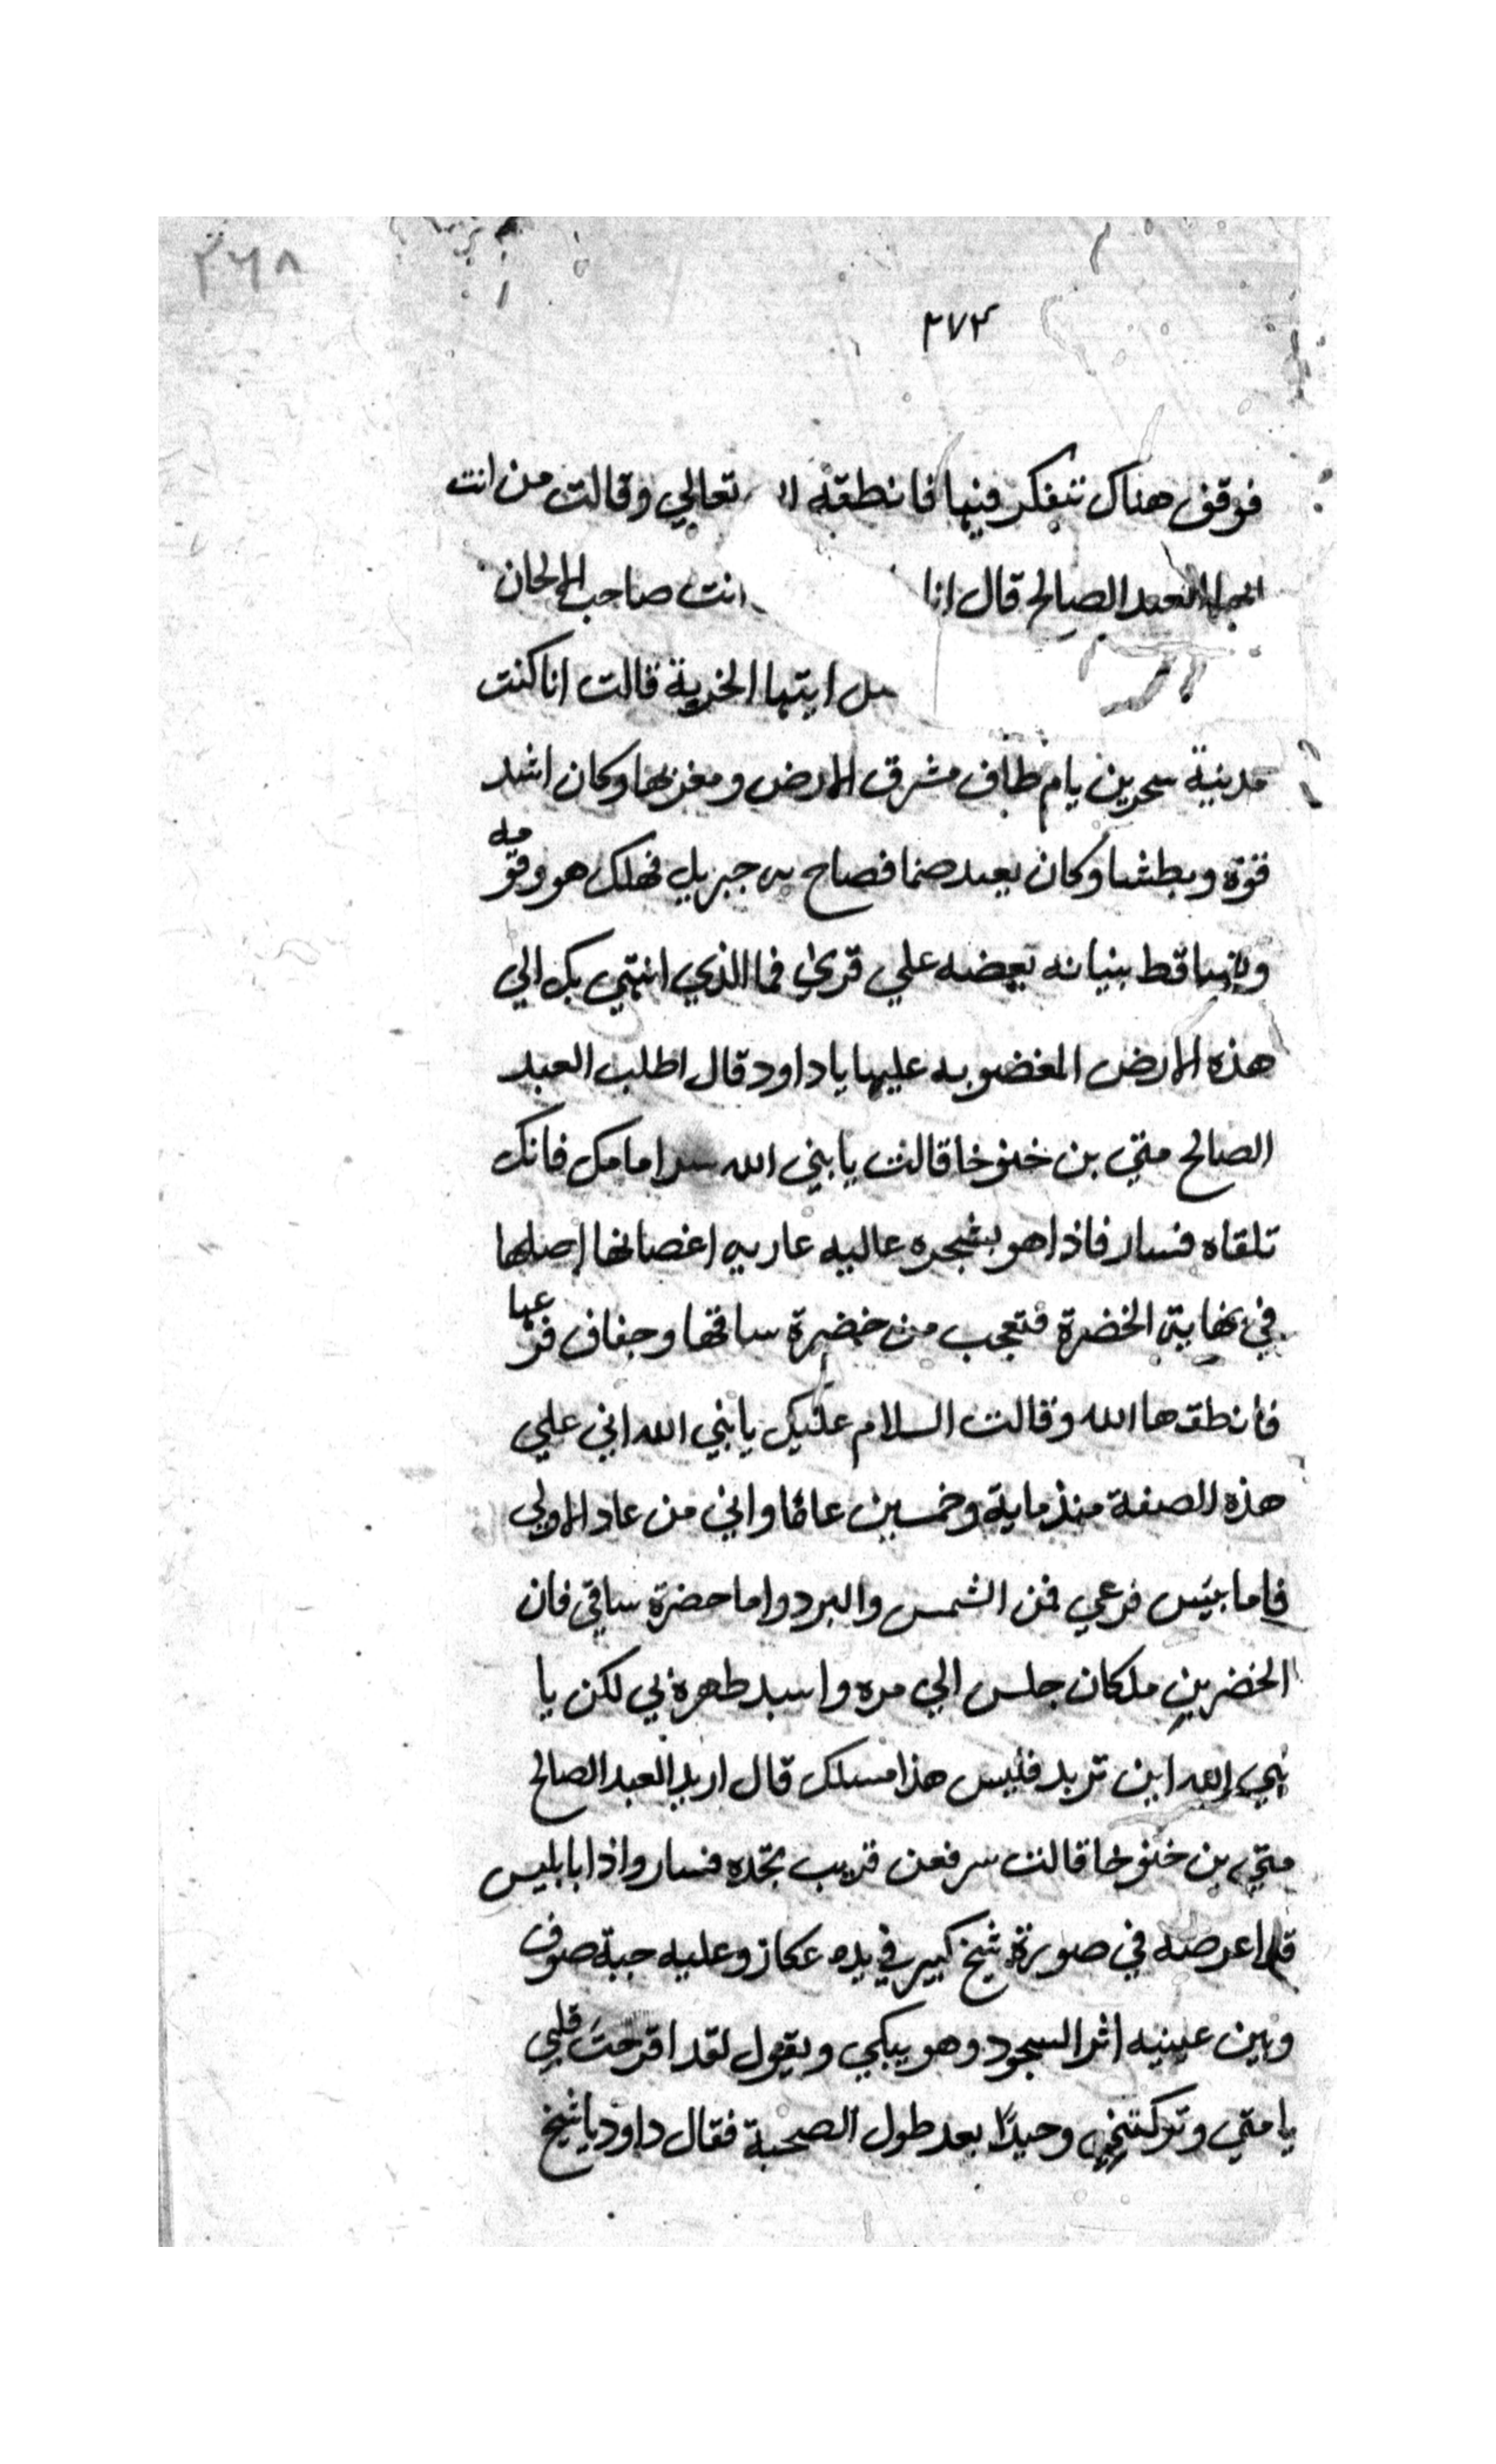 ٣٦٨
٢٧٣
فوقف هناك تتفكر فيها فانطقه تعالي وقالت من انت
العبد الصالح قال انا انت صاحب الالحان
ايتها الخربة قالت انا كنت
مدينة سحرين يام طاف مشرق الارض ومغربها وكان اشد
قوة وبطشا وكان يعبد صنما فصاح به جبريل فهلك هو وقومه
وتساقط بنيانه بعضه علي فما الذي انتهي بك الي
هذه الارض المغضوبه عليها يا داود قال اطلب العبد
الصالح متي بن خنوخا قالت يا نبي الله سر امامك فانك
تلقاه فسار فاذا هو بشجره عاليه عاريه اغصانها اصلها
في نهاية الخضرة فتعجب من خضرة ساقها وجفاف فرعها
فانطقها الله وقالت السلام عليك يا نبي الله اني علي
هذه الصفة منذ ماية وخمسين عاما واني من عاد الاولي
فاما يبس فرعي فمن الشمس والبرد واما خضرة ساقي فان
الخضر بن ملكان جلس الي مره واسند ظهره بي لكن يا
نبي الله اين تريد فليس هذا مسلك قال اريد العبد الصالح
متي بن خنوخا قالت سر فعن قريب تجده فسار واذا بابليس
قد اعرضه في صورة شيخ كبير في يده عكاز وعليه جبة صوف
وبين عينيه اثر السجود وهو يبكي ويقول لقد اقرحت قلبي
يا متي وتركتني وحيدًا بعد طول الصحبة فقال داود يا شيخ